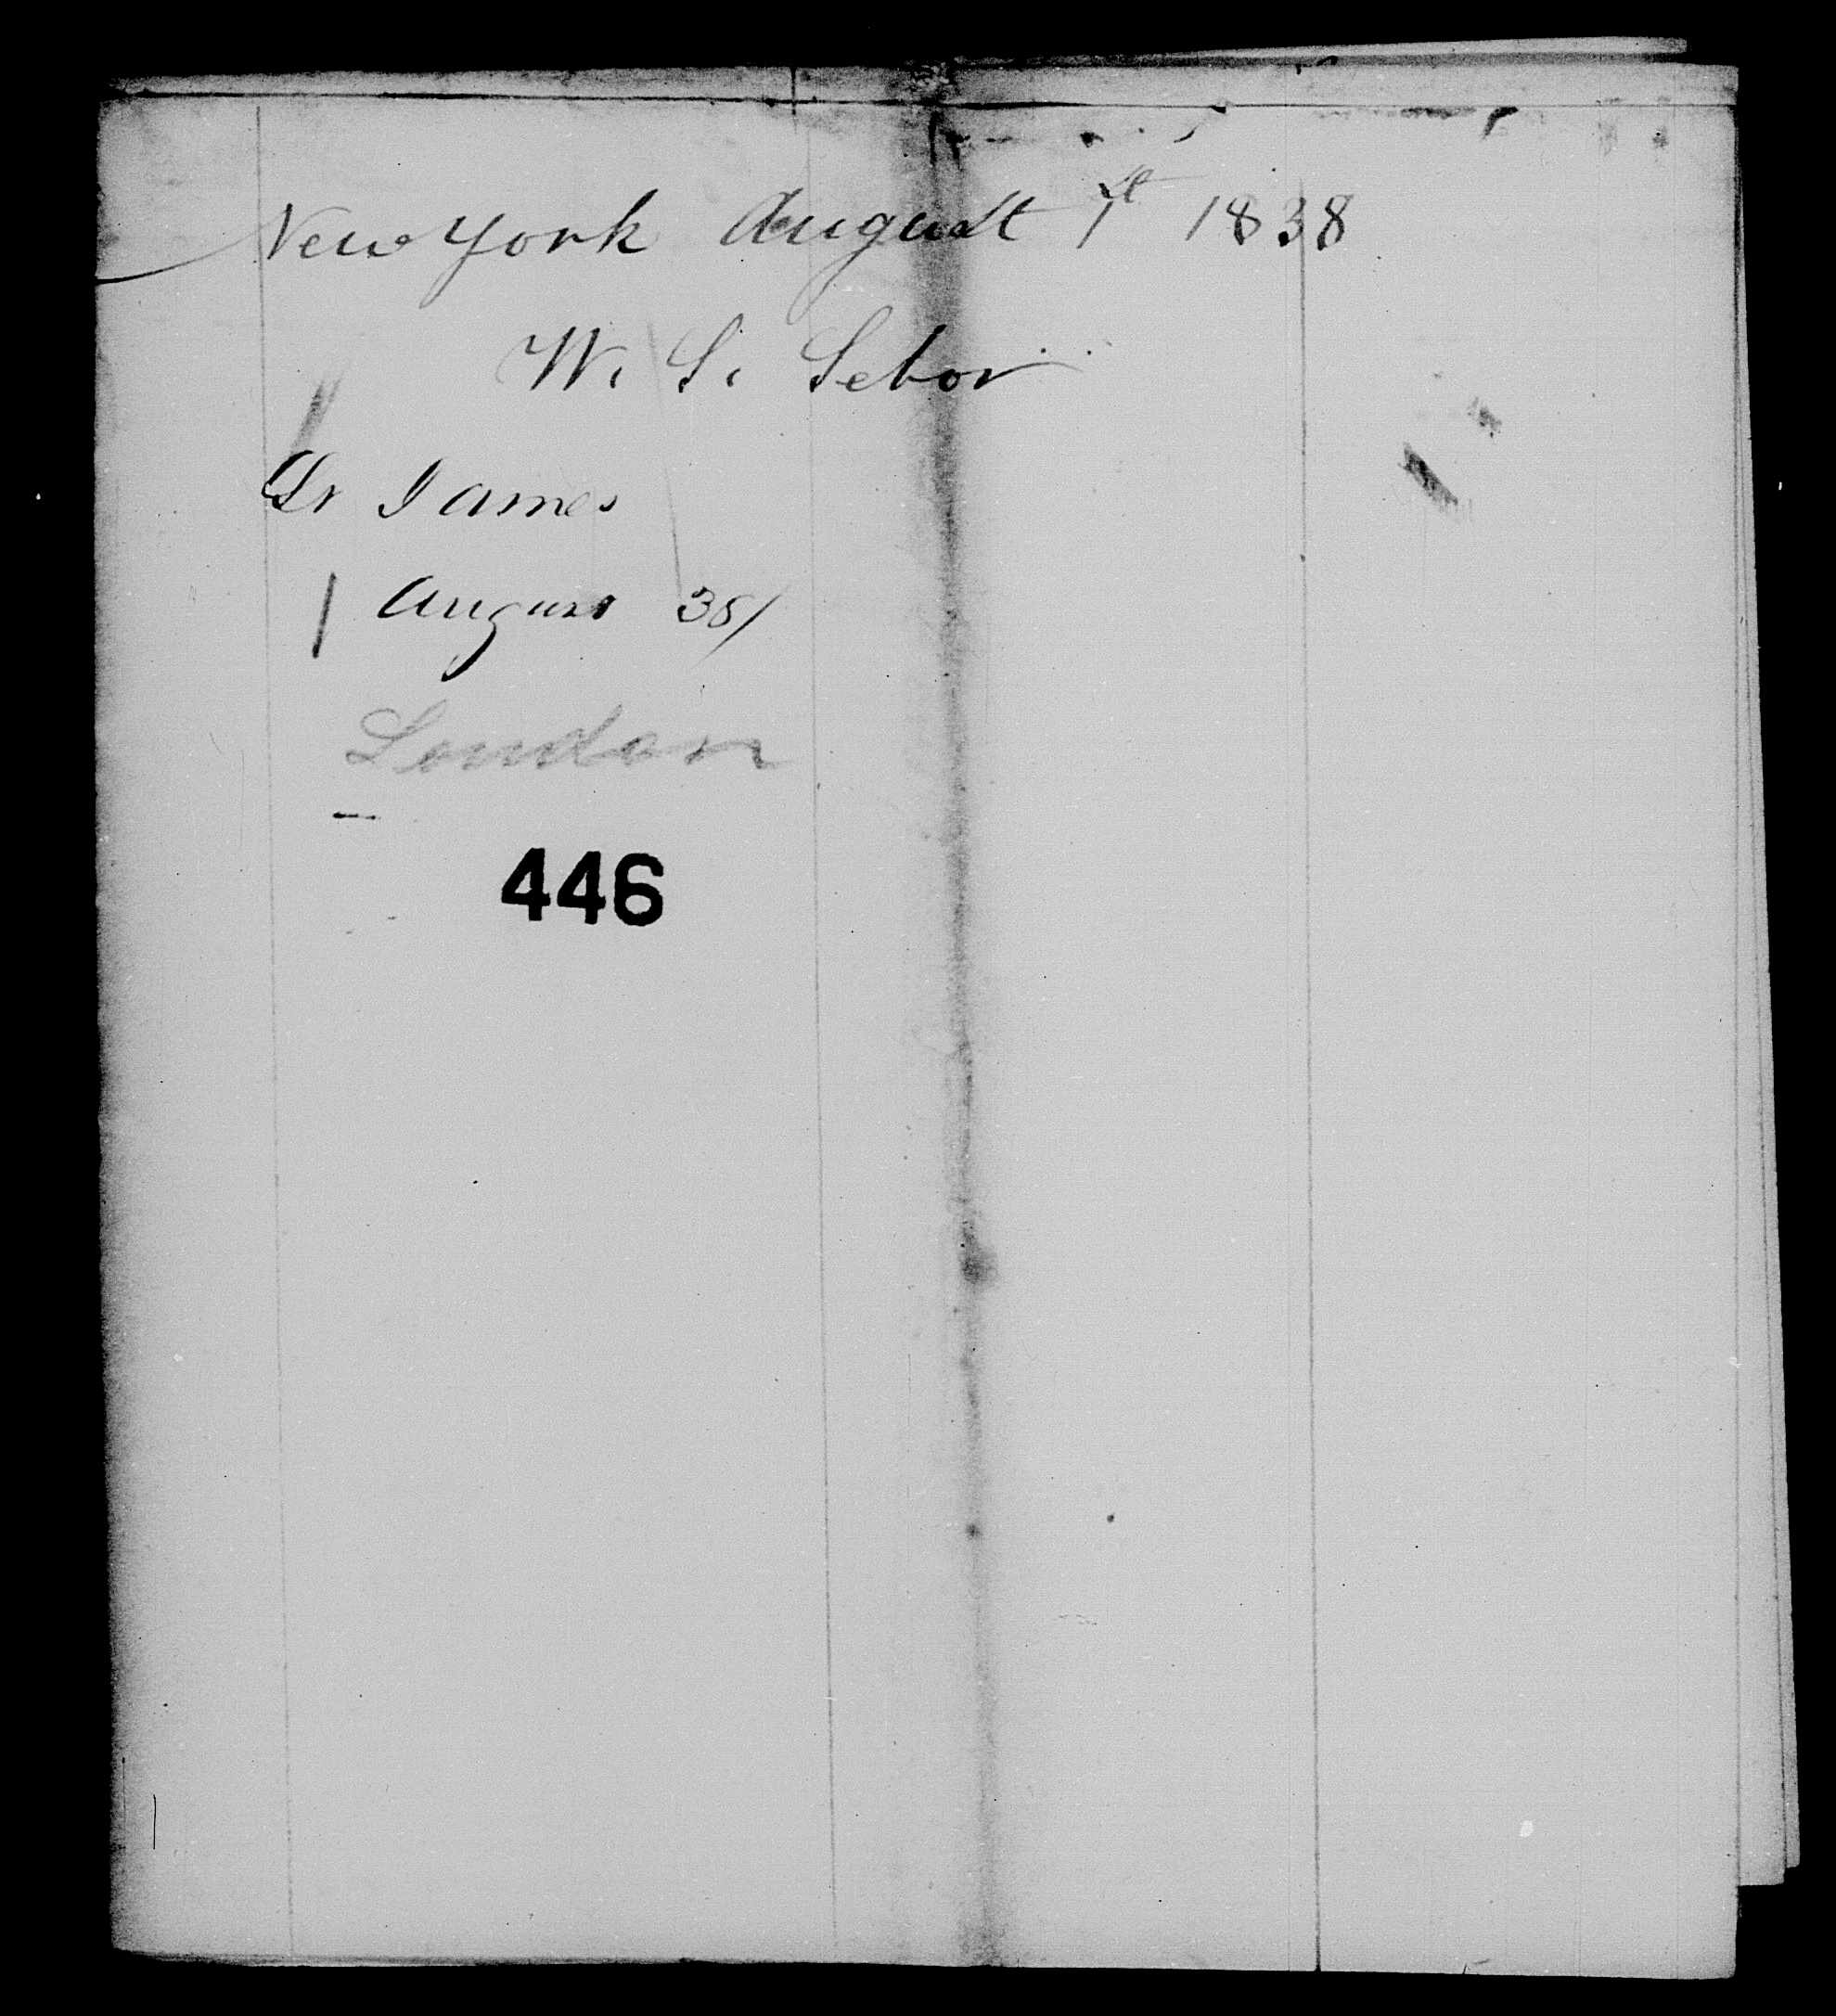 New York August 1st 1838
W. S. Sebor
St James
1 August 38/
London
446